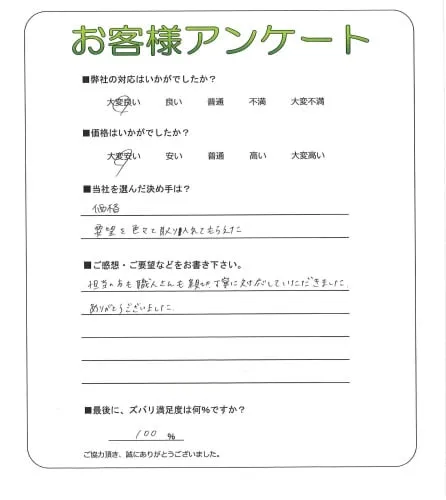 お客様アンケート
■弊社の対応はいかがでしたか？
大変良い 良い 普通 不満 大変不満
■価格はいかがでしたか？
大変安い 安い 普通 高い 大変高い
■当社を選んだ決め手は？
価格
要望を全て取り入れてもらえた
■ご感想・ご要望などをお書き下さい。
担当の方も職人さんも 丁寧に対応していただきました
ありがとうございました
■最後に、ズバリ満足度は何％ですか？
100 ％
ご協力頂き、誠にありがとうございました。